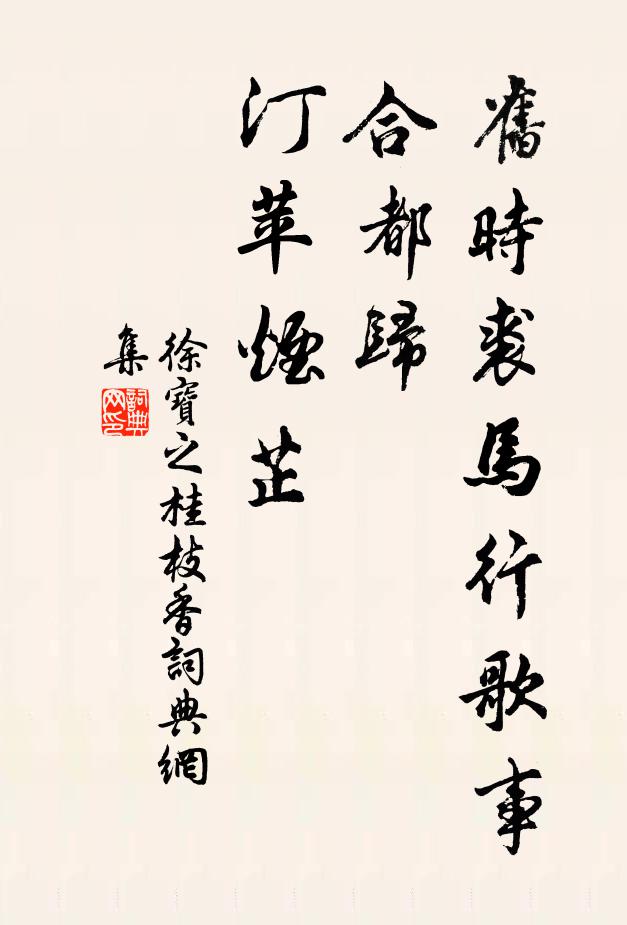 舊時裘馬行歌事
合都歸
汀苹煙芷
徐寶之桂枝香詞典網
集
詞典
网印